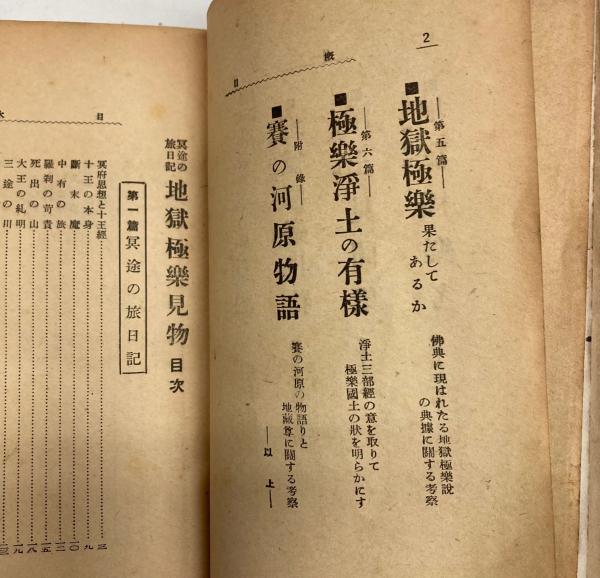 2
概
目
第五篇
■地獄極樂果たして
あるか
佛典に現はれたる地獄極樂說
の典據に關する考察
第六篇
■極樂淨土の有樣
淨土三部經の意を取りて
極樂國土の狀を明らかにす
附錄
■賽の河原物語
賽の河原の物語りと
地藏尊に關する考察
―以上―
目
次
冥途の
旅日記
地獄極樂見物目次
第一篇 冥途の旅日記
冥府思想と十王經……三
十王の本身……九
斷末魔……一〇
中有の旅……一二
羅刹の苛責……一五
死出の山……一八
大王の糺明……一九
三途の川